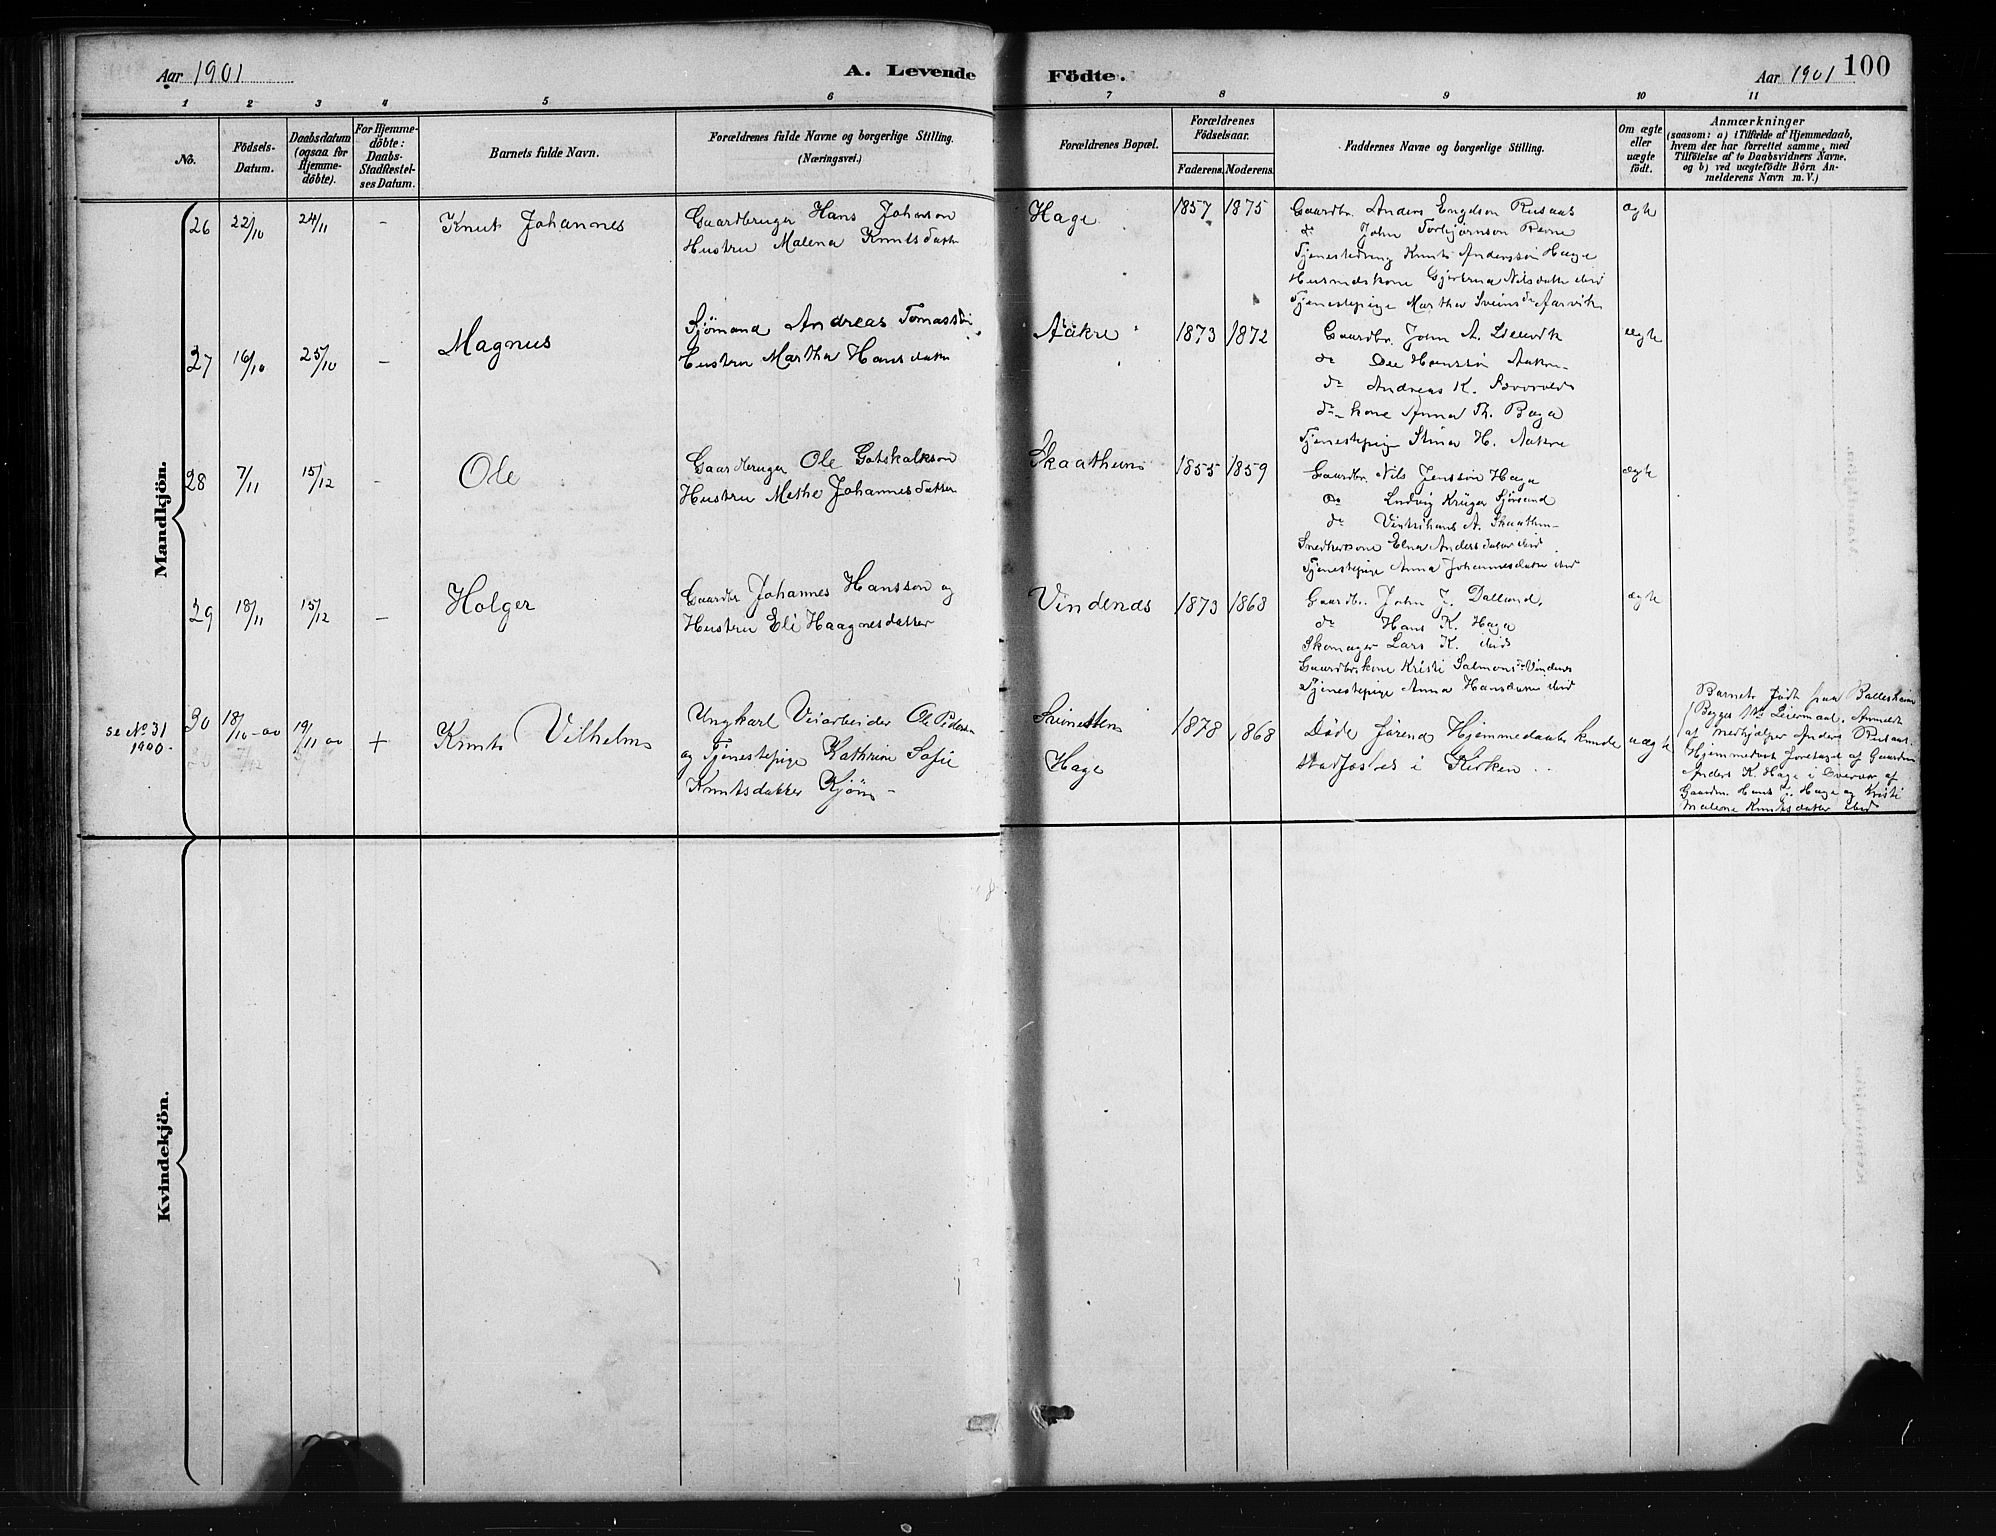 Aar 1901
A. Levende
Födte.
Aar 1901
100
1 2 3 4 5 6 7 8 9 10 11
No.
Födsels-
Datum.
Daabsdatum
(ogsaa for
Hjemme-
döbte).
For Hjemme-
döbte:
Daabs-
Stadfæstel-
ses Datum.
Barnets fulde Navn.
Forældrenes fulde Navne og borgerlige Stilling.
(Næringsvei.)
Forældrenes Bopæl.
Forældrenes
Födselsaar.
Faderens. Moderens.
Faddernes Navne og borgerlige Stilling.
Om ægte
eller
uægte
födt.
Anmærkninger
(saasom: a) i Tilfælde af Hjemmedaab,
hvem der har forrettet samme, med
Tilföielse af to Daabsvidners Navne,
og b) ved uægtefödte Börn An-
melderens Navn m. V.)
Mandkjön.
26 22/10 24/11 - Knut Johannes
Gaardbruger Hans Johnson
Hustru Malena Knutsdatter
Hage 1857 1875
Gaardbr. Anders Engelson Rusaas
do John Torbjørnson Revne
Knut Andersson Hage
Husmdskone Gjertrua Nilsdatter ibid
Tjenestepige Martha Sveinsdr Aarvik
ægte
27 16/10 25/10 - Magnus
Sjømand Andreas Tomasson
Hustru Martha Hansdatter
Aakre 1873 1872
Gaardbr. John A.
do Ole Hansson Aakre
do Andreas K.
do kone Anna Th. Haga
Tjenestepige Stina H. Aakre
ægte
28 7/11 15/12 - Ole
Gaardbruger Ole Gotskalkson
Hustru Methe Johannesdatter
Skaatheim 1855 1859
Gaardbr. Nils Jensson Haga
do Ludvig Krüger Sjøsand
do A. Skaathun
Elna Andersdatter ibid.
Tjenestepige Anna Johannesdatter ibid
ægte
29 18/11 15/12 - Holger
Gaardbr Johannes Hansson og
Hustru Eli Haagnesdatter
Vindenes 1873 1868
Gaardbr. John J. Dalland,
do Hans K. Haga
Skomager Lars K. ibid
Gaardbr.kone Kristi Salmonsdr Vindenes
Tjenestepige Anna Hansdatter ibid
ægte
se No 31
1900.
30 18/10-00 19/11 00 + Knut Vilhelm
Ungkarl Veiarbeider Ole Pedersen
og Tjenestepige Kathrine Sofie
Knutsdatter Kjøn
Hage
1878 1868
Døde førend Hjemmedaaben kunde
stadfæstes i Kirken.
uægte
Barnet født paa
Begges Leiermaal. Anmeldt
af Medhjælper Anders Rusaas.
Hjemmedøbt foretaget af Gaardm
Anders K. Hage i Overvær af
Gaardm. Hans J. Hage og Kristi
Malene Knutsdatter ibid
Kvindekjön.